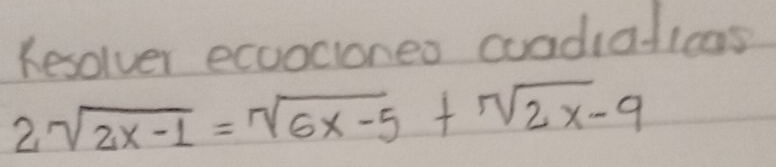 Resolver ecuaciones cuadraticas
2√(2x-1) = √(6x-5) + √(2x-9)